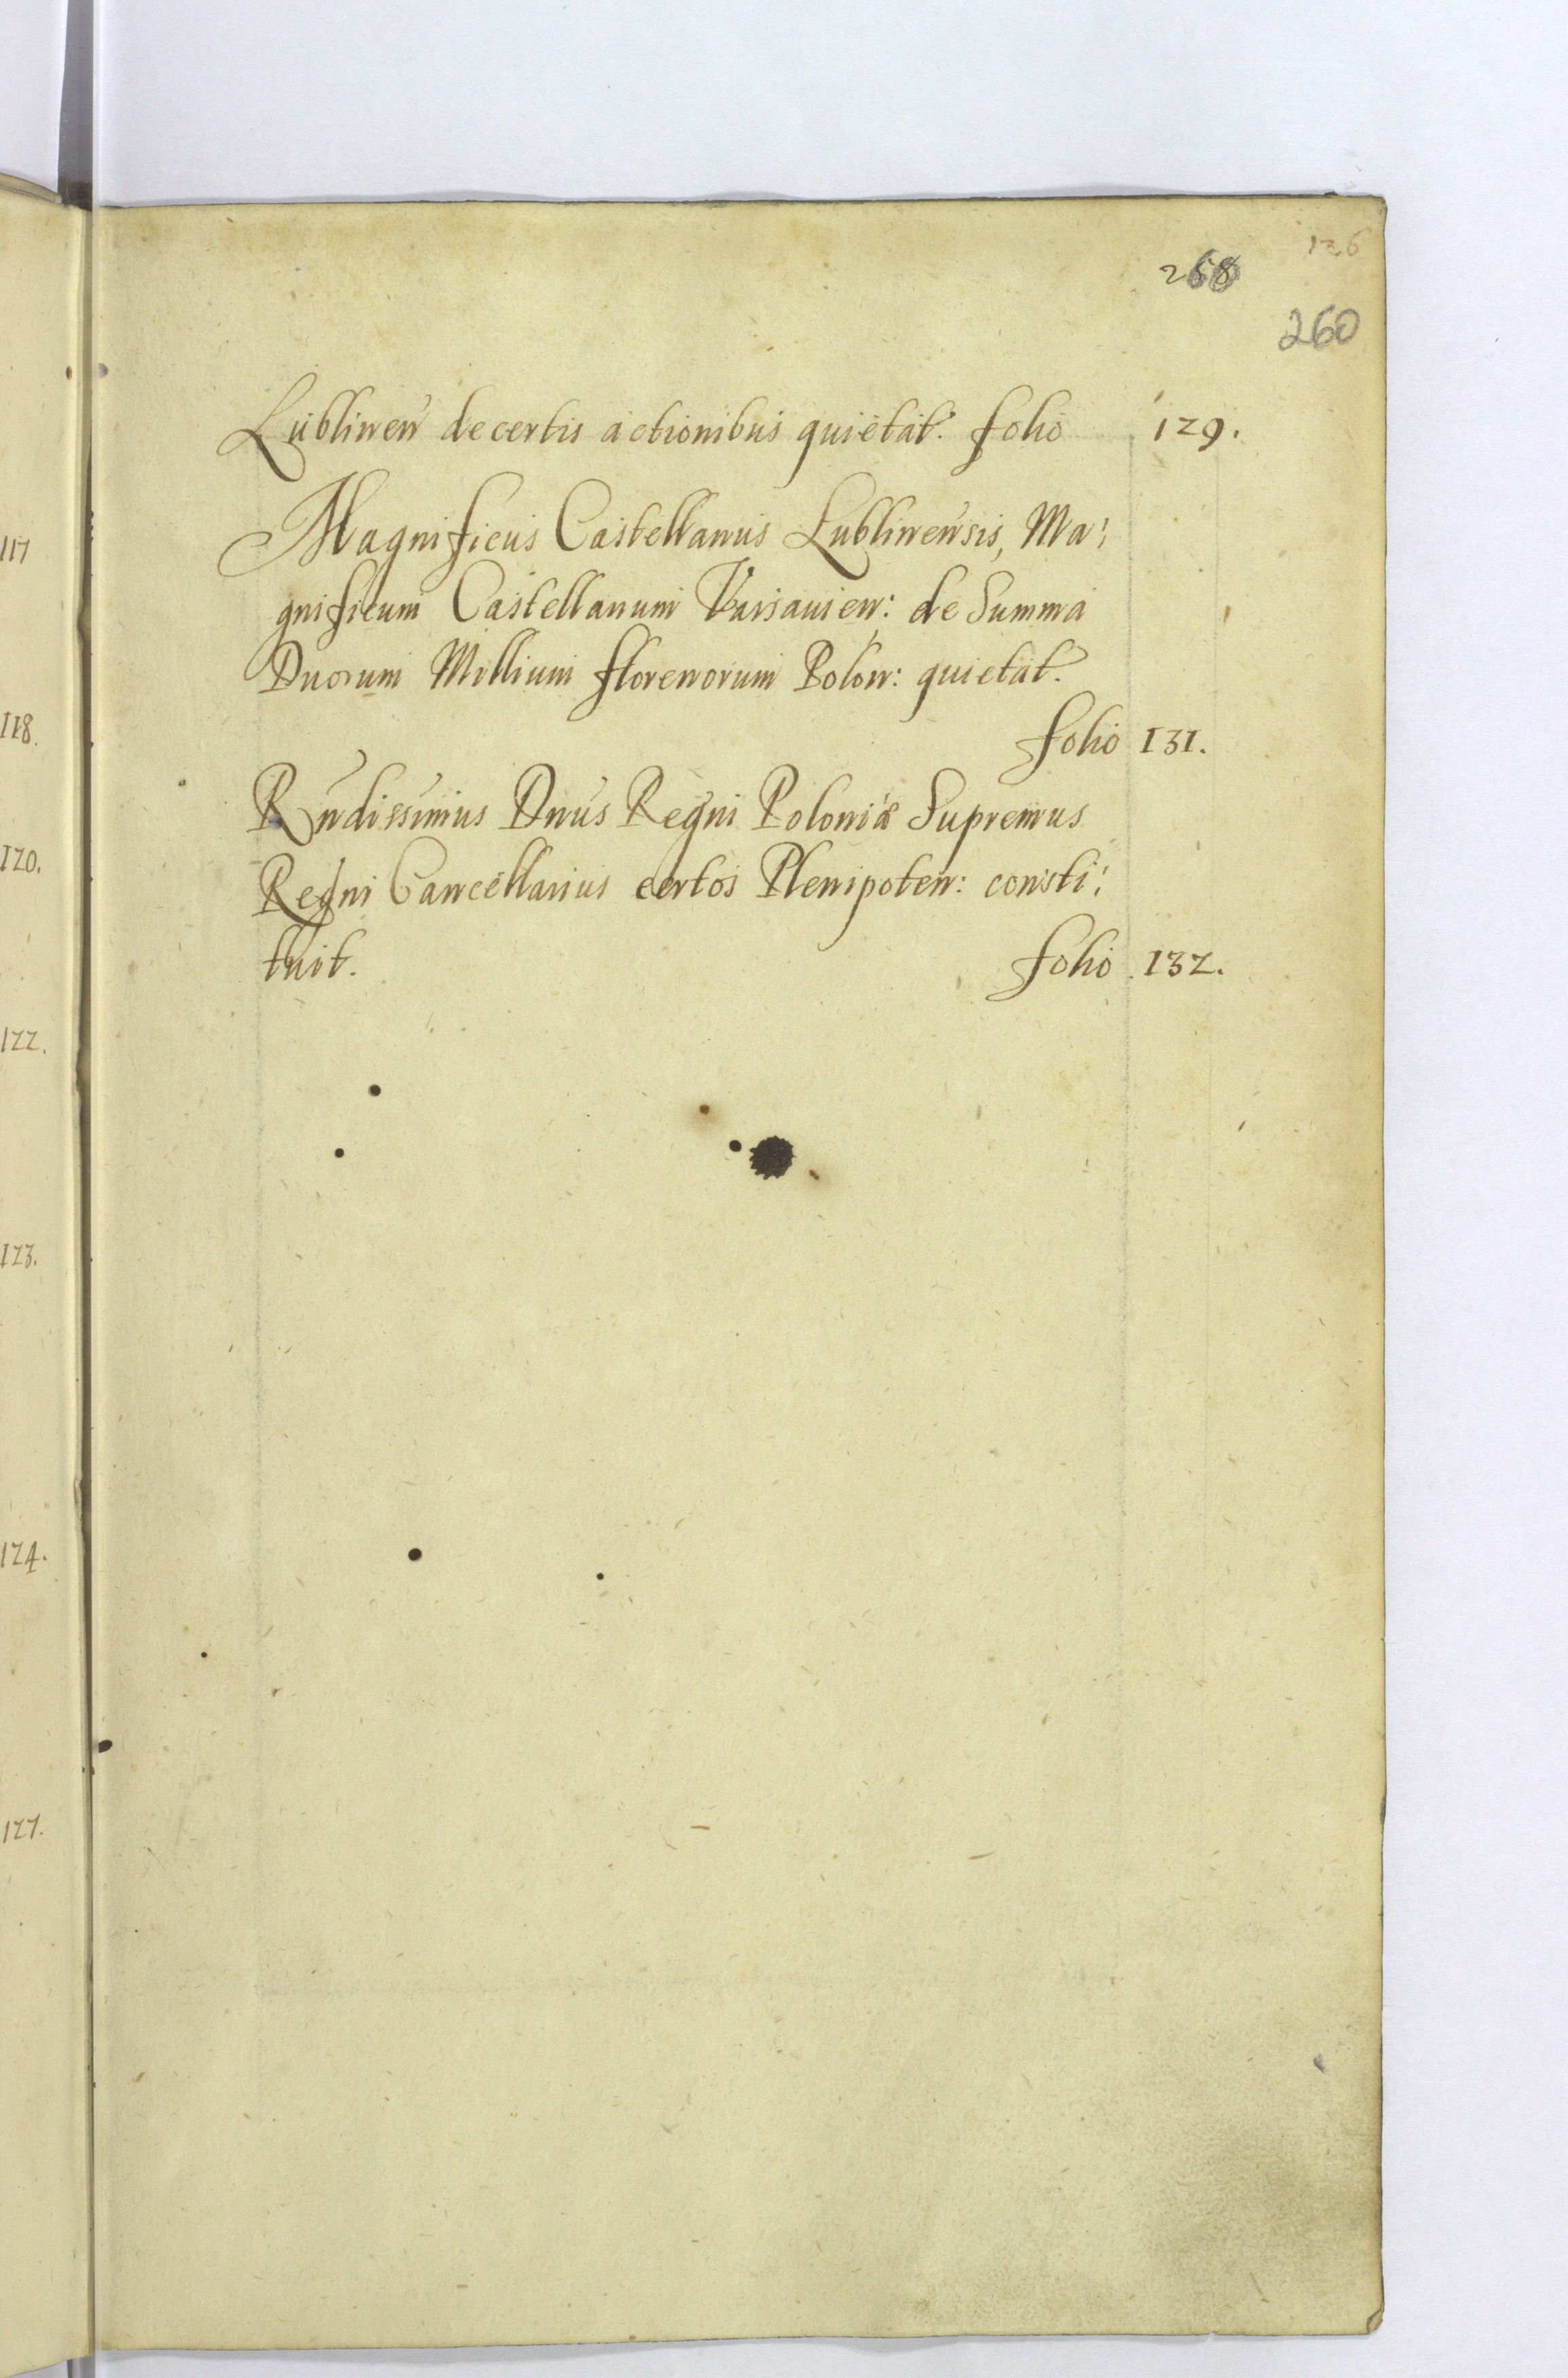 126
268
260
Lublinen decertis actionibus quietat. folio 129.
Magnificus Castellanus Lublinensis, Ma:
gnificum Castellanum Varsauien: de Summa
Duorum Millium florenorum Polon: quietat.
folio 131.
Rndissimus Dnus Regni Poloniæ Supremus
Regni Cancellarius certos Plenipoten: consti:
tuit. folio 132.
117
118.
120.
122.
123.
124.
127.